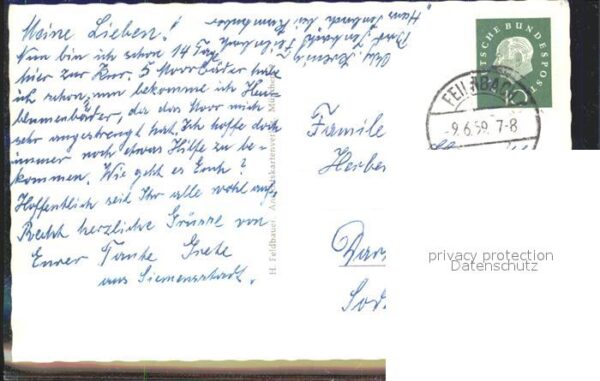 Meine Lieben!
Nun bin ich schon 14 Tage
hier zur Kur. 5 Moorbäder habe
ich schon, nun bekomme ich Heu-
blumenbäder, da das Moor mich
sehr angestrengt hat. Ich hoffe doch
immer noch etwas Hilfe zu be-
kommen. Wie geht es Euch?
Hoffentlich seid Ihr alle wohl auf.
Recht herzliche Grüsse von
Eurer Tante Grete
aus Siemensstadt.
H. Feldbauer, Ansichtskartenverlag München
DEUTSCHE BUNDESPOST
FEILNBACH
-9.6.59. 7-8
Familie
Herber
Dar
Sod
privacy protection
Datenschutz